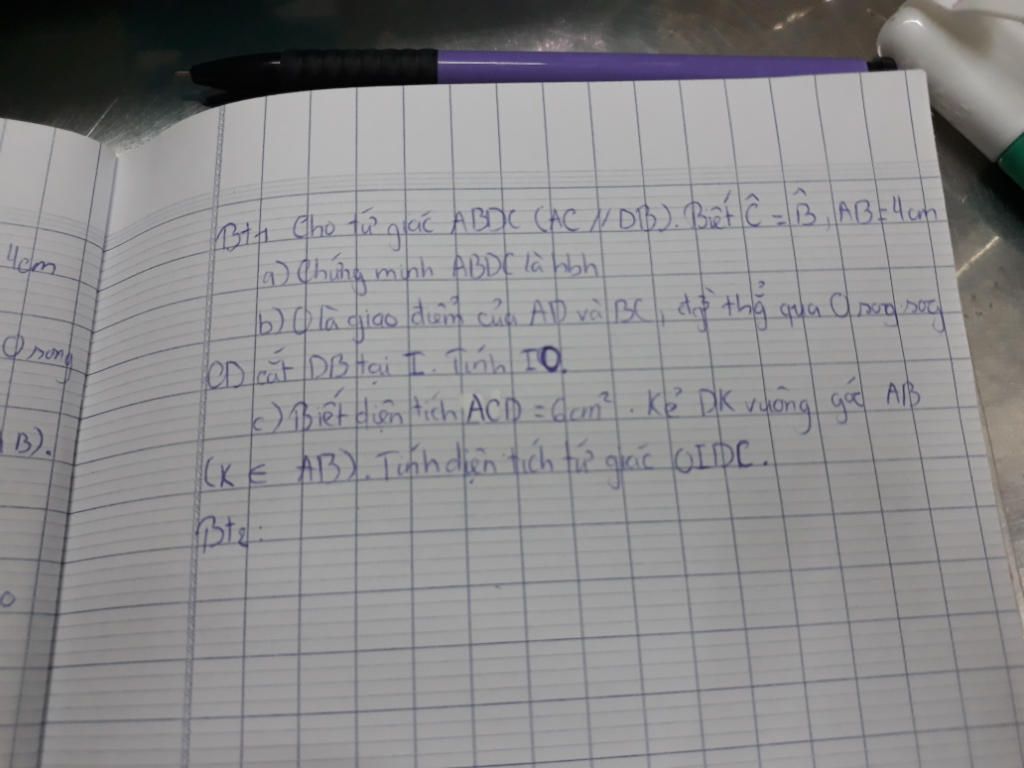 Bt1 Cho tứ giác ABDC (AC // DB). Biết Ĉ = B̂, AB = 4cm
a) Chứng minh ABDC là hbh
b) O là giao điểm của AD và BC, đg thẳg qua O sog sog
CD cắt DB tại I. Tính IO.
c) Biết diện tích ACD = 6cm². Kẻ DK vuông góc AB
(K ∈ AB). Tính diện tích tứ giác OIDC.
Bt2:
4cm
O song
B).